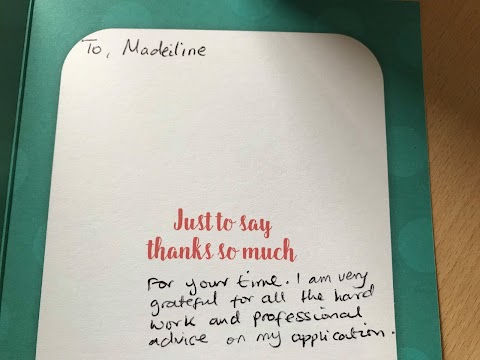 To, Madeiline
Just to say
thanks so much
For your time. I am very
grateful for all the hard
work and professional
advice on my application.